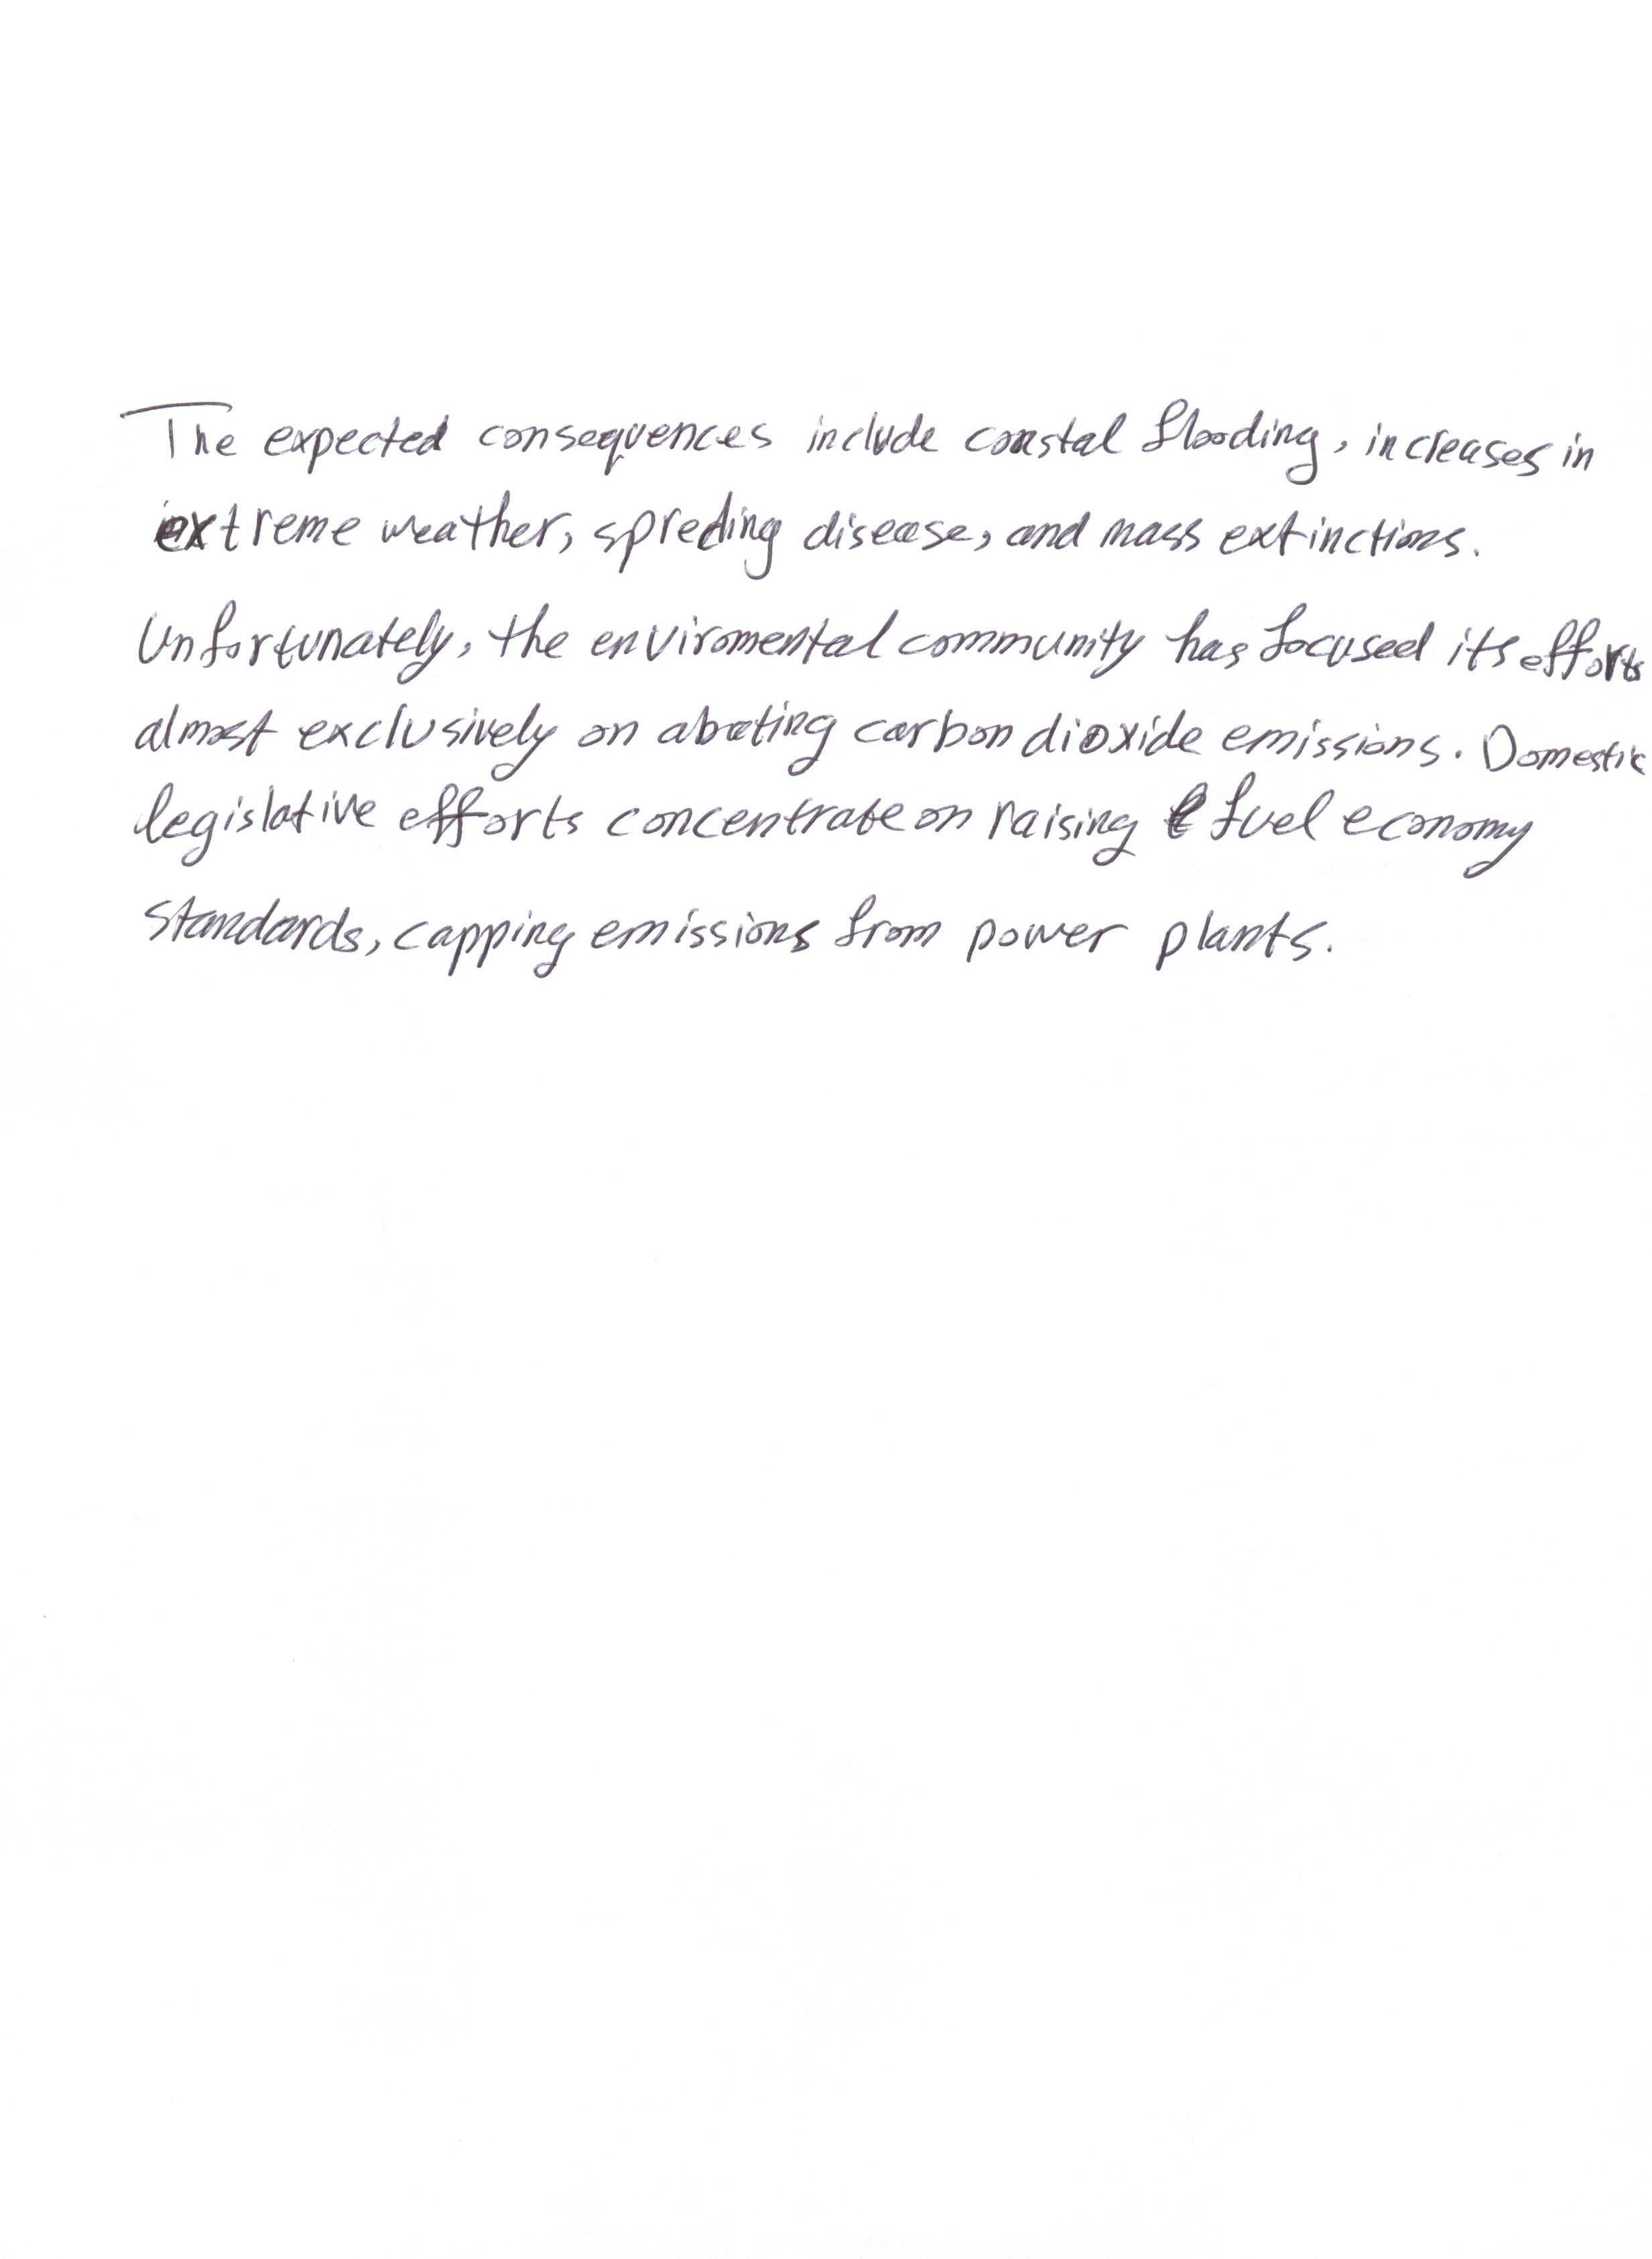 The expected consequences include coastal flooding, increases in
extreme weather, spreding disease, and mass extinctions.
Unfortunately, the enviromental community has focused its efforts
almost exclusively on abating carbon dioxide emissions. Domestic
legislative efforts concentrate on raising fuel economy
standards, capping emissions from power plants.